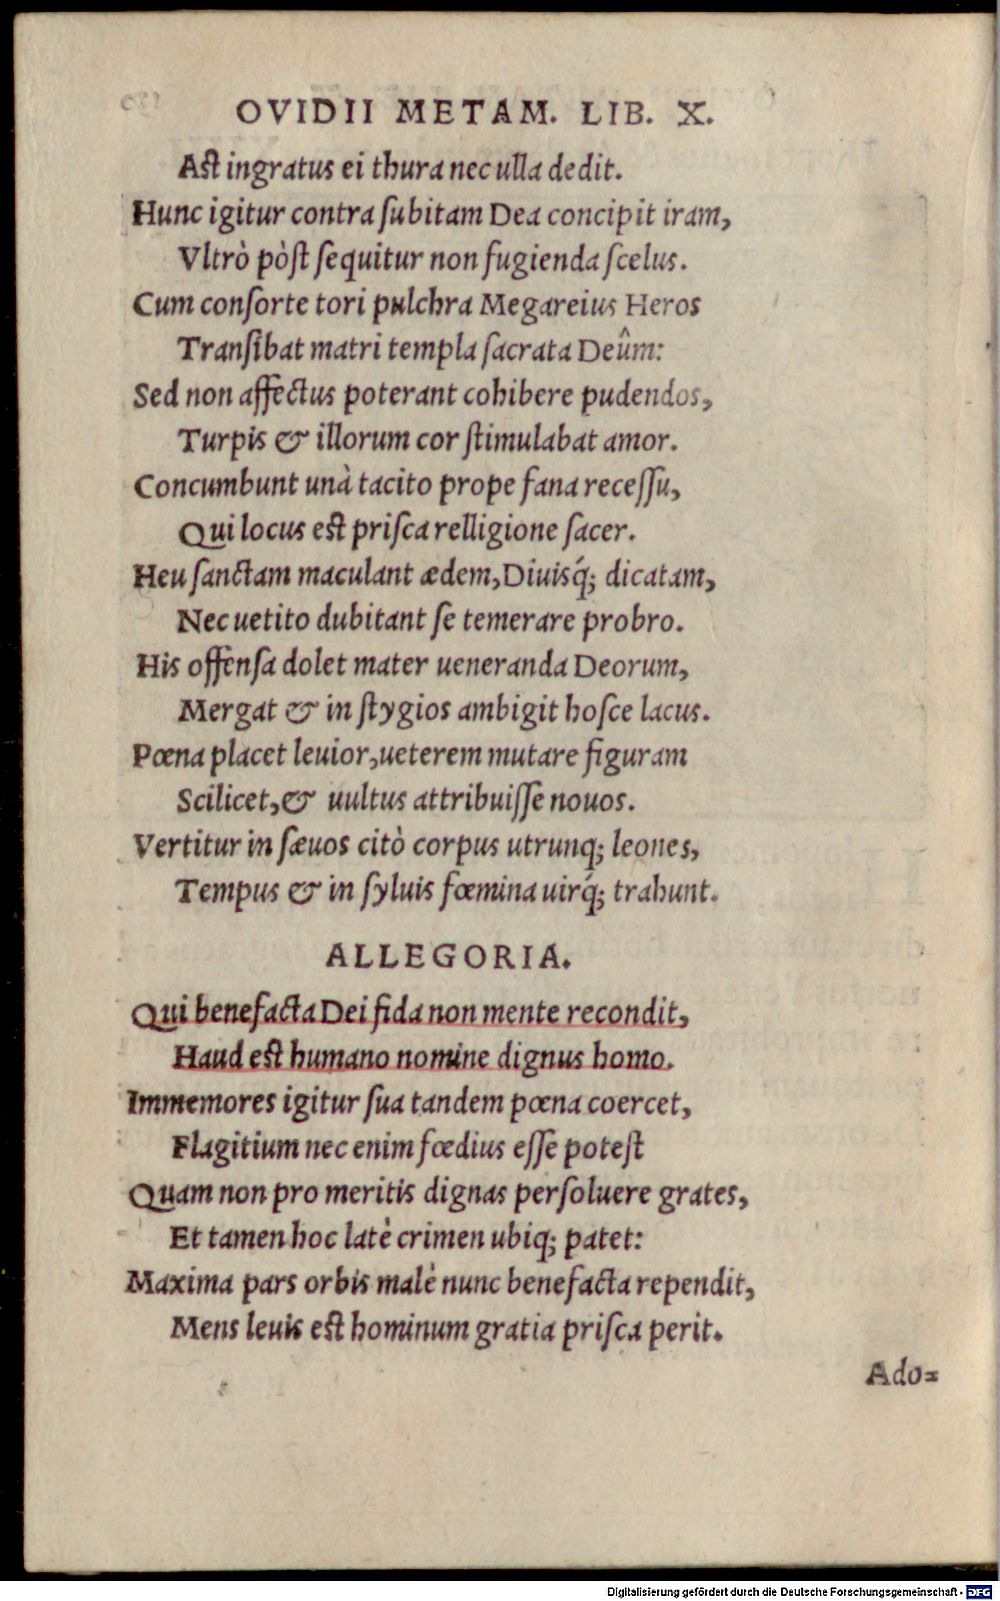 OVIDII METAM. LIB. X.
Ast ingratus ei thura nec ulla dedit.
Hunc igitur contra ſubitam Dea concipit iram,
Vltrò pòſt ſequitur non fugienda ſcelus.
Cum conſorte tori pulchra Megareius Heros
Tranſibat matri templa ſacrata Deûm:
Sed non affectus poterant cohibere pudendos,
Turpis & illorum cor ſtimulabat amor.
Concumbunt unà tacito prope fana receſſu,
Qui locus est priſca relligione ſacer.
Heu ſanctam maculant ædem, Diuisq́; dicatam,
Nec uetito dubitant ſe temerare probro.
His offenſa dolet mater ueneranda Deorum,
Mergat & in ſtygios ambigit hoſce lacus.
Pœna placet leuior, ueterem mutare figuram
Scilicet, & uultus attribuiſſe nouos.
Vertitur in ſæuos citò corpus utrunq; leones,
Tempus & in ſyluis fœmina uirq́; trahunt.
ALLEGORIA.
Qui benefacta Dei fida non mente recondit,
Haud est humano nomine dignus homo.
Immemores igitur ſua tandem pœna coercet,
Flagitium nec enim fœdius eſſe poteſt
Quam non pro meritis dignas perſoluere grates,
Et tamen hoc latè crimen ubiq; patet:
Maxima pars orbis malè nunc benefacta rependit,
Mens leuis est hominum gratia priſca perit.
Ado=
Digitalisierung gefördert durch die Deutsche Forschungsgemeinschaft - DFG